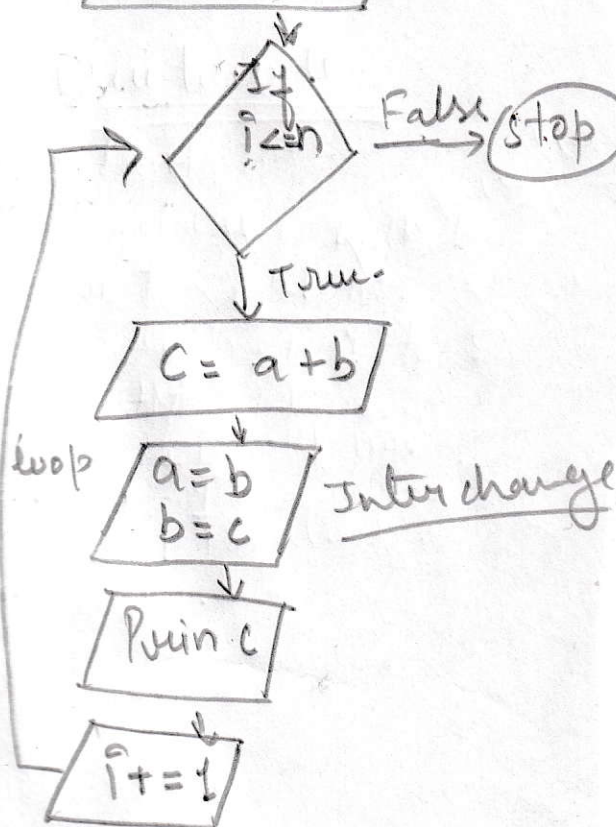 If
i<=n
False
Stop
True.
C = a+b
loop
a=b
b=c
Interchange
Prin c
i+=1